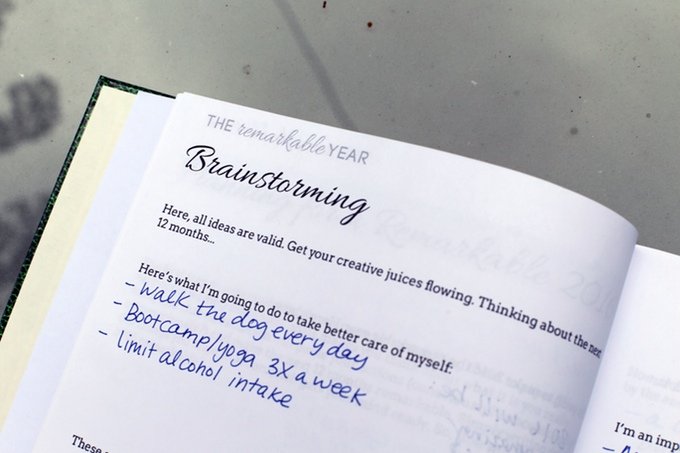 THE remarkable YEAR
Brainstorming
Here, all ideas are valid. Get your creative juices flowing. Thinking about the next
12 months...
Here's what I'm going to do to take better care of myself:
- walk the dog every day
- Bootcamp/yoga 3X a week
- limit alcohol intake
These
I'm an imp